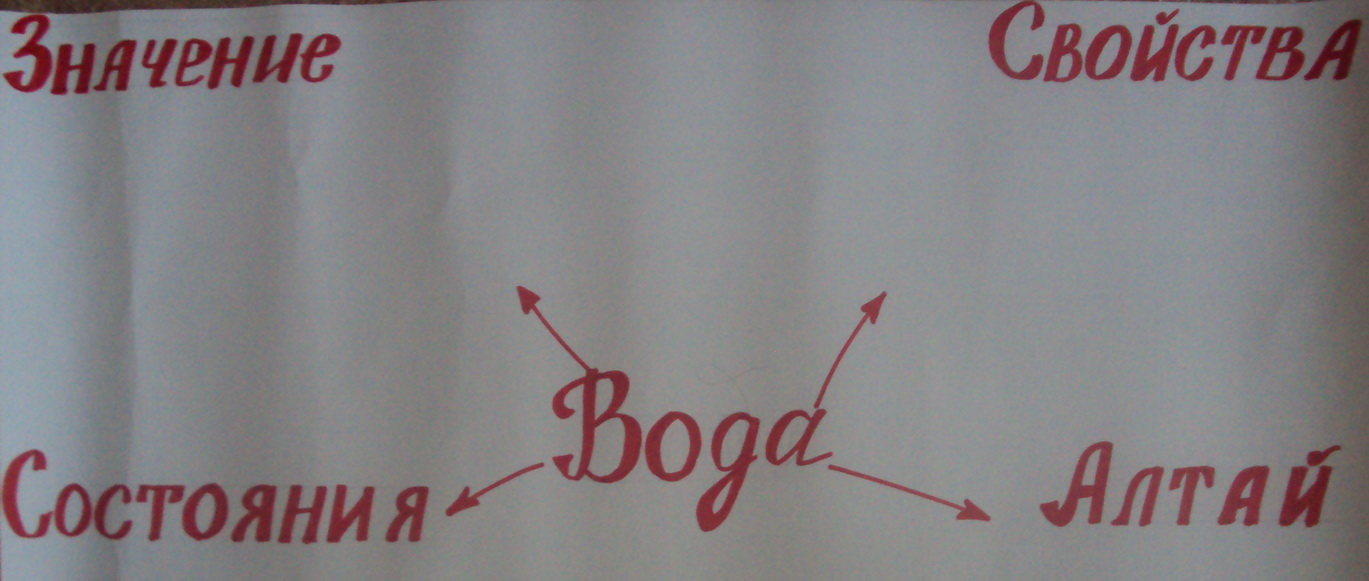 Значение
Свойства
Вода
Состояния
Алтай